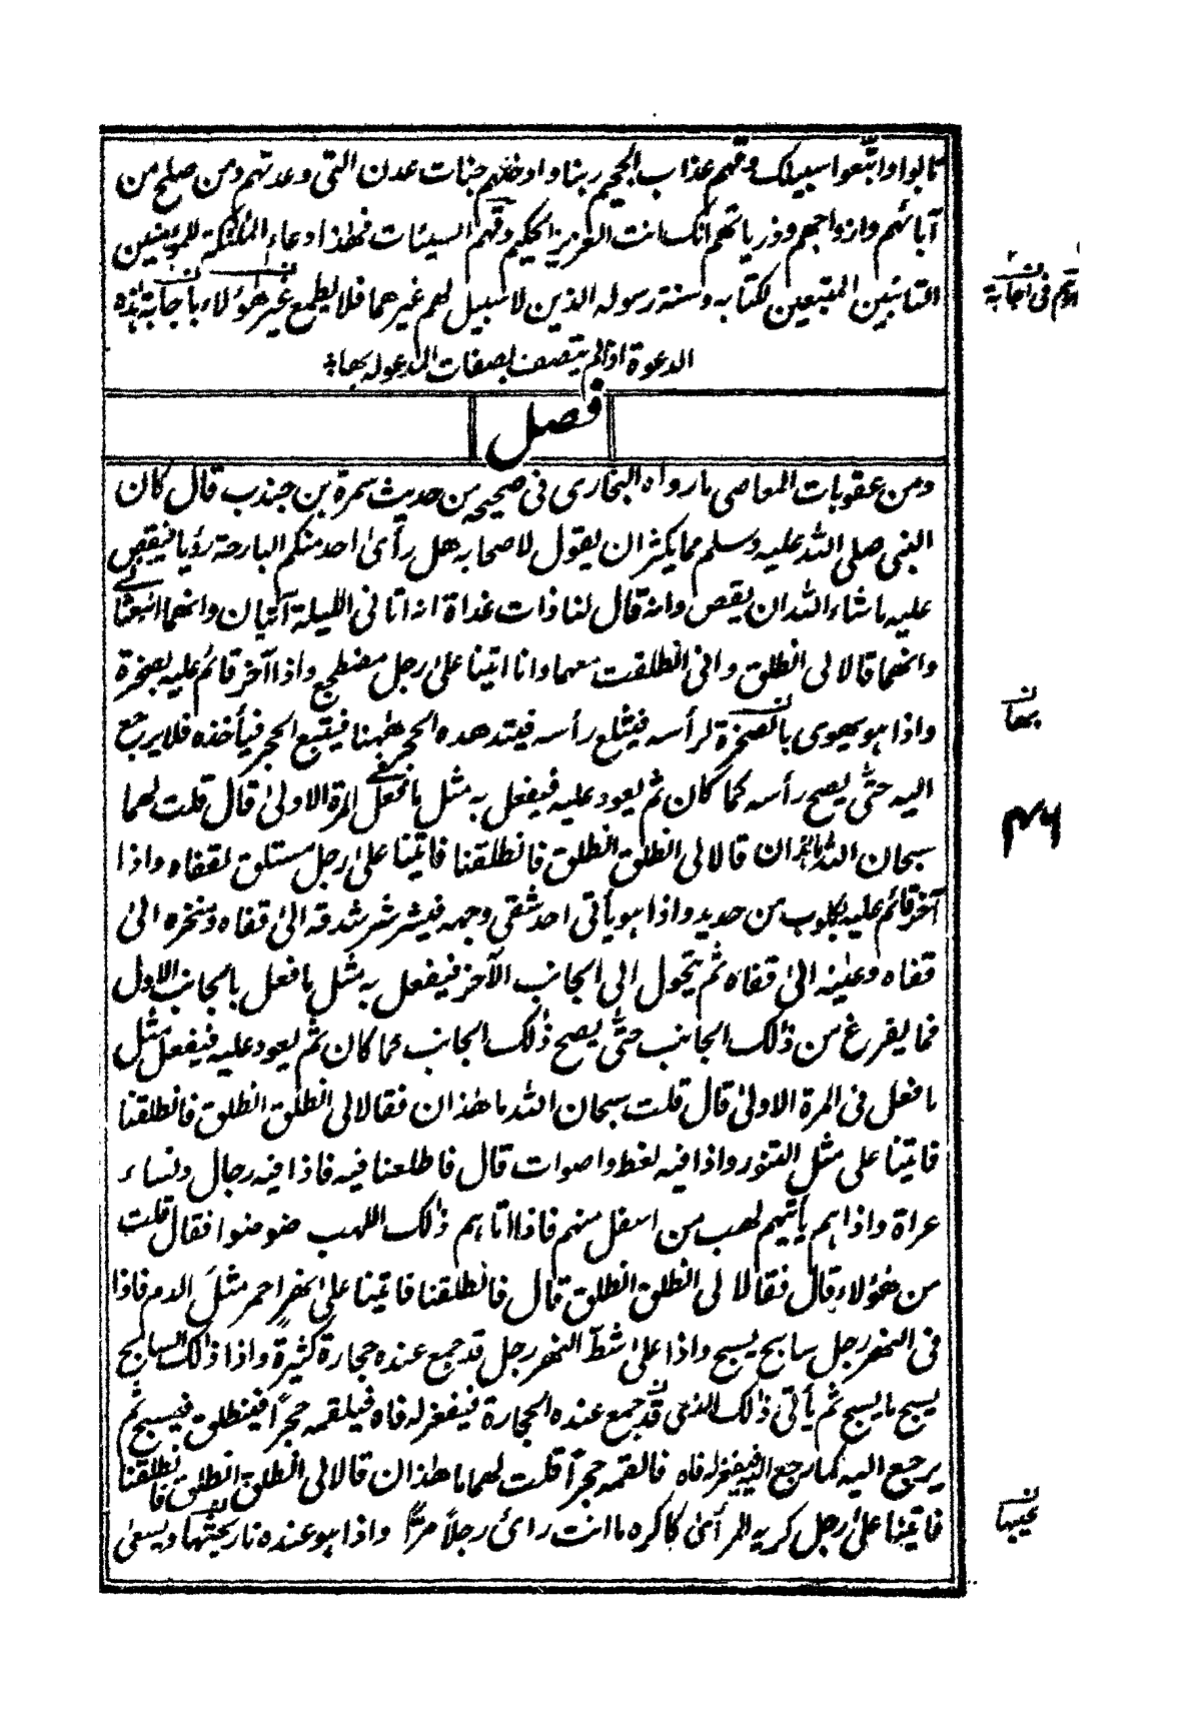 تابوا واتبعوا سبيلك وقهم عذاب الجحيم ربنا وادخلهم جنات عدن التى وعدتهم ومن صلح من
آبائهم وازواجهم وذرياتهم انك انت العزيز الحكيم وقهم السيئات فهذا دعاء الملئكة للمؤمنين
التائبين المتبعين لكتابه وسنة رسوله الذين لا سبيل لهم غيرهما فلا يطمع غير هؤلاء باجابة هذه
الدعوة اذا لم يتصف بصفات المدعو له بها
فصل
ومن عقوبات المعاصى ما رواه البخارى فى صحيحه من حديث سمرة بن جندب قال كان
النبى صلى الله عليه وسلم مما يكثر ان يقول لاصحابه هل رأى احد منكم البارحة رؤيا فيقص
عليه ما شاء الله ان يقص وانه قال لنا ذات غداة انه اتانى الليلة آتيان وانهما ابتعثا
وانهما قالا لى انطلق وانى انطلقت معهما وانا اتينا على رجل مضطجع واذا آخر قائم عليه بصخرة
واذا هو يهوى بالصخرة لرأسه فيثلغ رأسه فيتدهده الحجر ههنا فيتبع الحجر فيأخذه فلا يرجع
اليه حتى يصح رأسه كما كان ثم يعود عليه فيفعل به مثل ما فعل المرة الاولى قال قلت لهما
سبحان الله ما هذان قالا لى انطلق انطلق فانطلقنا فاتينا على رجل مستلق لقفاه واذا
آخر قائم عليه بكلوب من حديد واذا هو يأتى احد شقى وجهه فيشرشر شدقه الى قفاه ومنخره الى
قفاه وعينه الى قفاه ثم يتحول الى الجانب الآخر فيفعل به مثل ما فعل بالجانب الاول
فما يفرغ من ذلك الجانب حتى يصح ذلك الجانب كما كان ثم يعود عليه فيفعل مثل
ما فعل فى المرة الاولى قال قلت سبحان الله ما هذان فقالا لى انطلق انطلق فانطلقنا
فاتينا على مثل التنور واذا فيه لغط واصوات قال فاطلعنا فيه فاذا فيه رجال ونساء
عراة واذا هم يأتيهم لهب من اسفل منهم فاذا اتاهم ذلك اللهب ضوضوا فقال قلت
من هؤلاء قال فقالا لى انطلق انطلق قال فانطلقنا فاتينا على نهر احمر مثل الدم فاذا
فى النهر رجل سابح يسبح واذا على شط النهر رجل قد جمع عنده حجارة كثيرة واذا ذلك السابح
يسبح ما يسبح ثم يأتى ذلك الذى قد جمع عنده الحجارة فيفغر له فاه فيلقمه حجرًا فينطلق فيسبح ثم
يرجع اليه كلما رجع اليه فيفغر له فاه فالقمه حجرًا قلت لهما ما هذان قالا لى انطلق انطلق فانطلقنا
فاتينا على رجل كريه المرأى كاكره ما انت رائ رجلًا مرأً واذا هو عنده نار يحثها ويسعى
بها